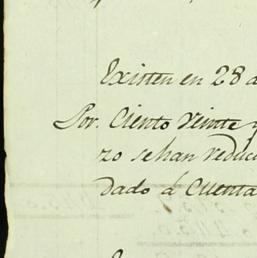 Existen en 28 d
Por. Ciento Veinte y
zo se han reduci
dado á Cuenta